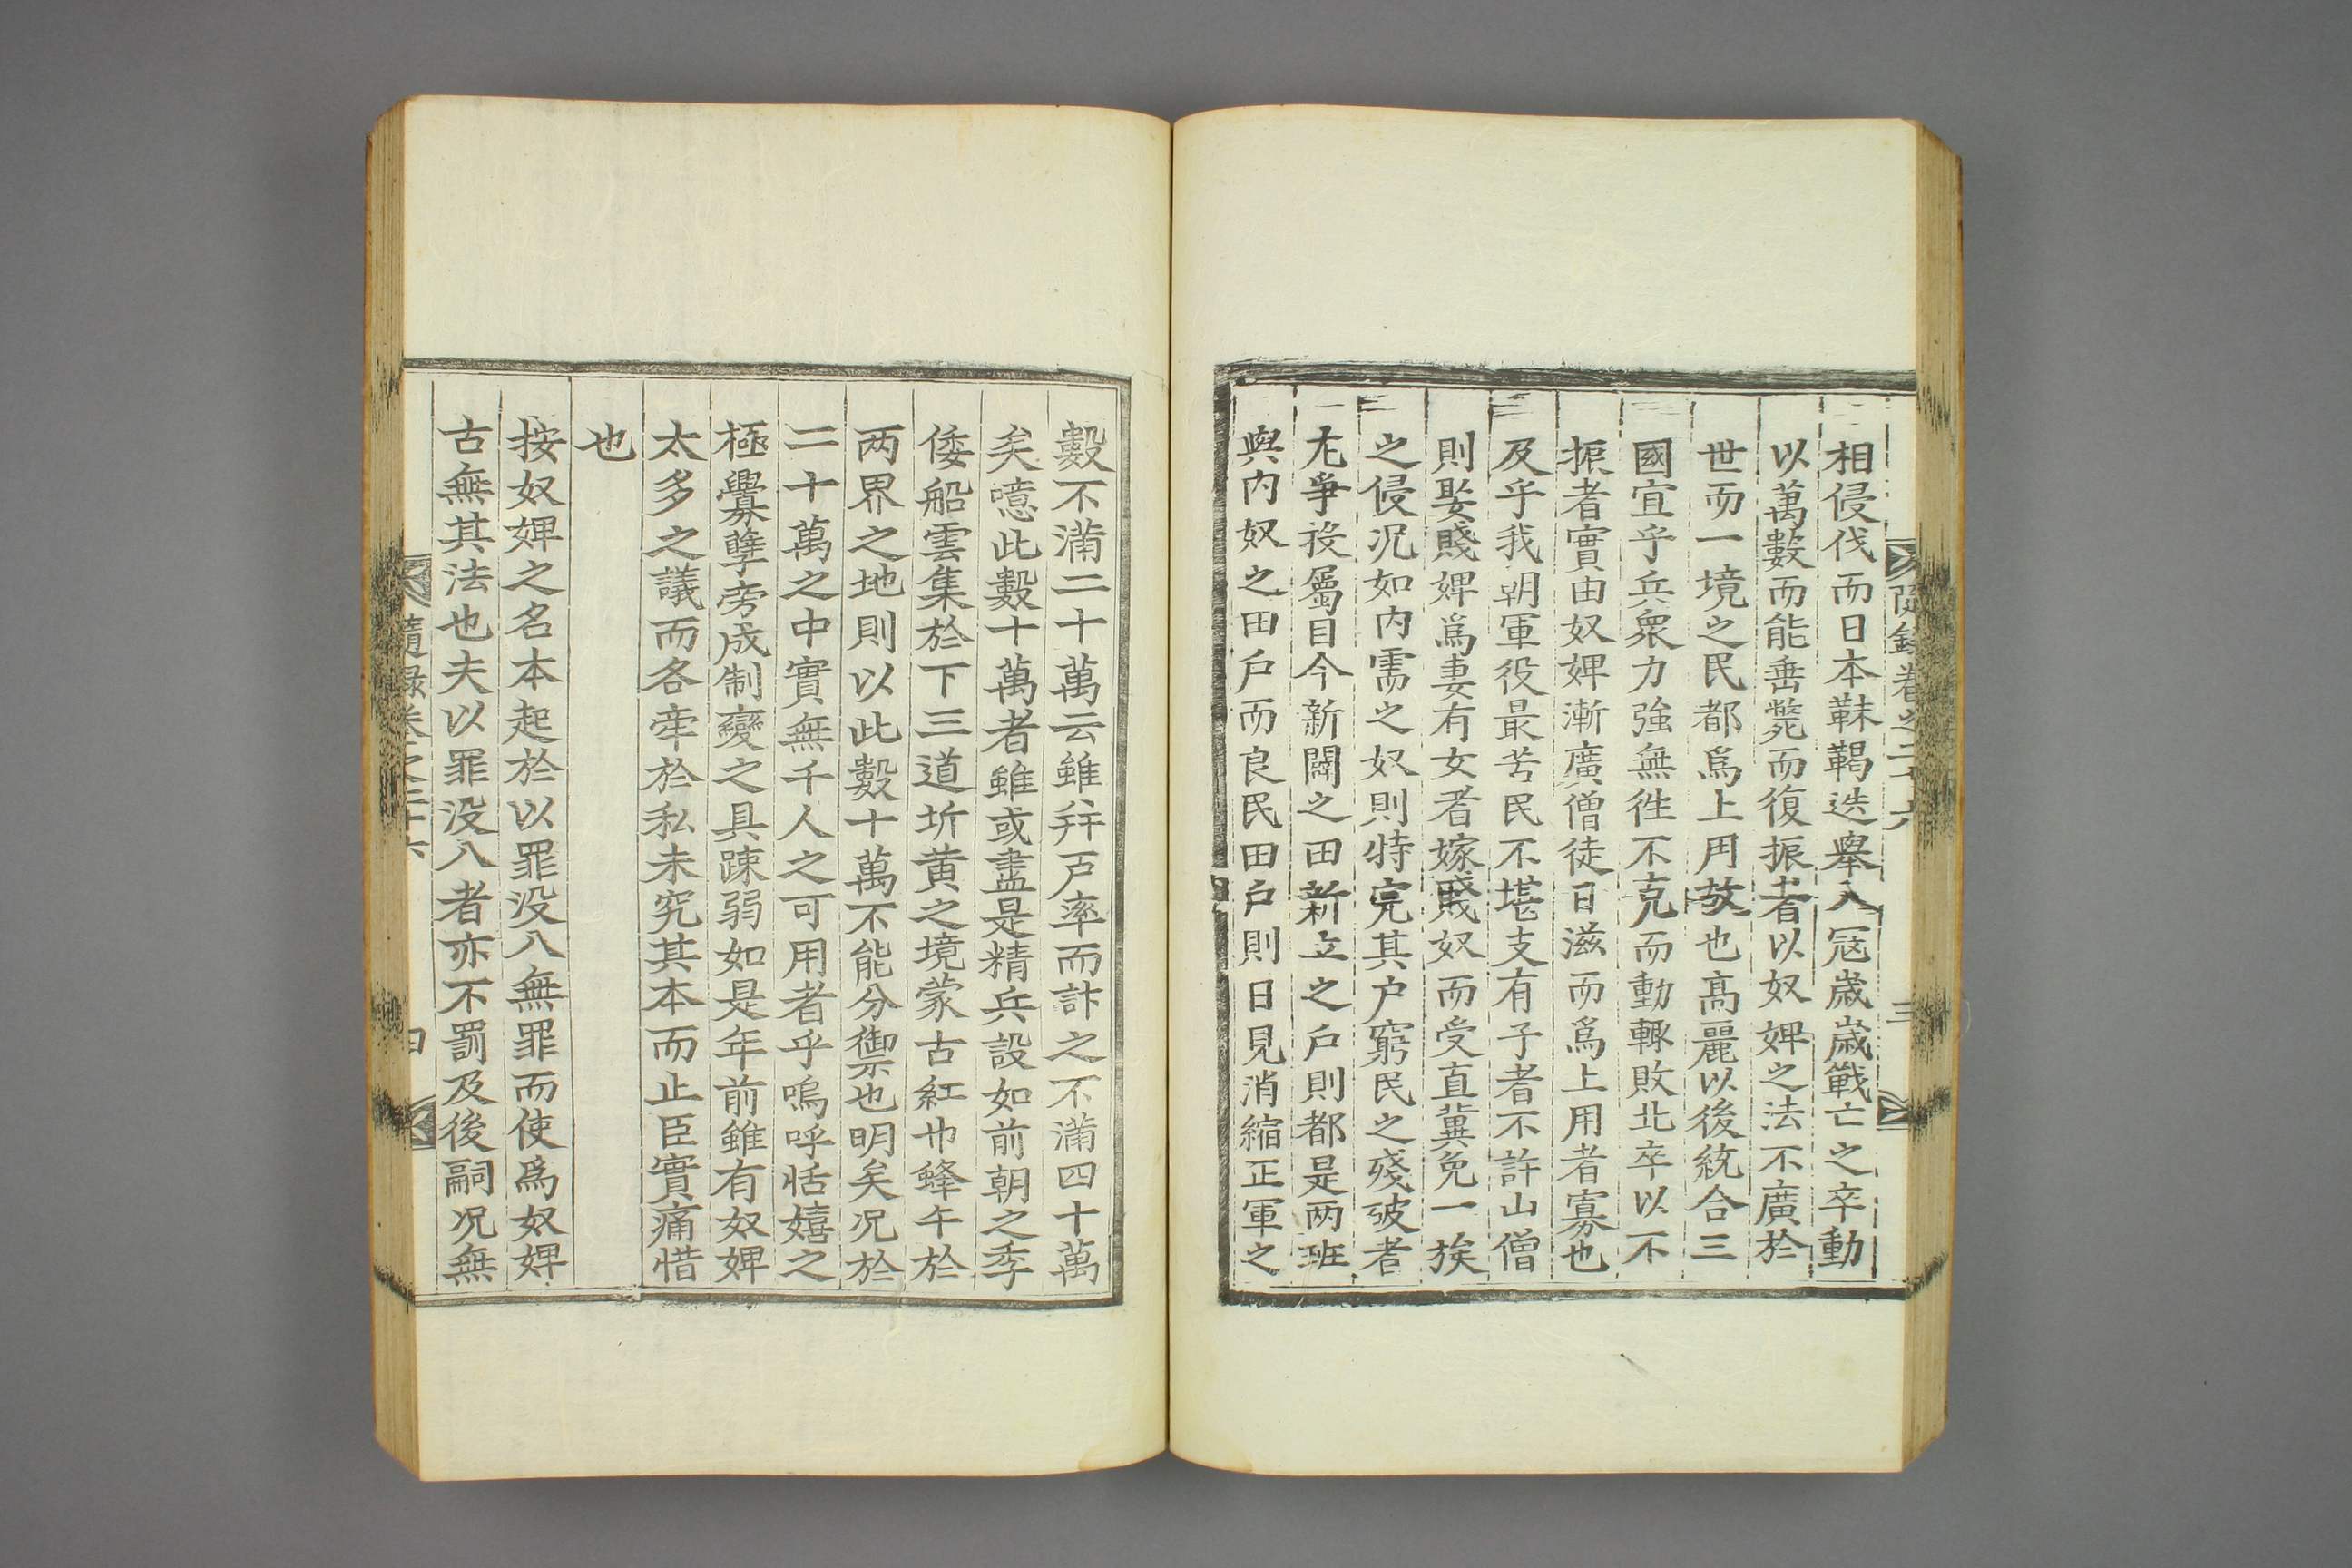 隨錄卷之二十六
三
相侵伐而日本靺鞨迭舉入冦歲歲戰亡之卒動
以萬數而能垂斃而復振者以奴婢之法不廣於
世而一境之民都爲上用故也髙麗以後統合三
國宜乎兵衆力強無徃不克而動輒敗北卒以不
振者實由奴婢漸廣僧徒日滋而爲上用者寡也
及乎我朝軍役最苦民不堪支有子者不許山僧
則娶賤婢爲妻有女者嫁賤奴而受直冀免一族
之侵况如内需之奴則特完其户窮民之殘破者
尤爭投屬目今新闢之田新立之户則都是两班
與内奴之田户而良民田户則日見消縮正軍之
數不滿二十萬云雖并戸率而計之不滿四十萬
矣噫此數十萬者雖或盡是精兵設如前朝之季
倭船雲集於下三道圻黄之境蒙古紅巾蜂午於
两界之地則以此數十萬不能分禦也明矣况於
二十萬之中實無千人之可用者乎嗚呼恬嬉之
極釁孽旁成制變之具踈弱如是年前雖有奴婢
太多之議而各牽於私未究其本而止臣實痛惜
也
按奴婢之名本起於以罪没入無罪而使爲奴婢
古無其法也夫以罪没入者亦不罰及後嗣况無
隨錄卷之二十六
四